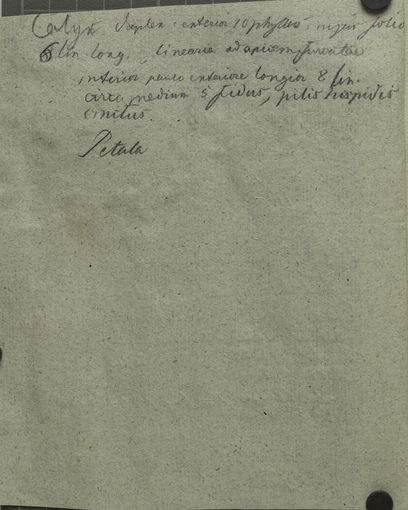 Calyx duplex: exterior 10 phyllus: hujus folio
6 lin. long. linearia ad apicem
interior paulo exteriore longior 8 lin.
circa medium 5 fidus, pilis hispidis
cinctus.
Petala